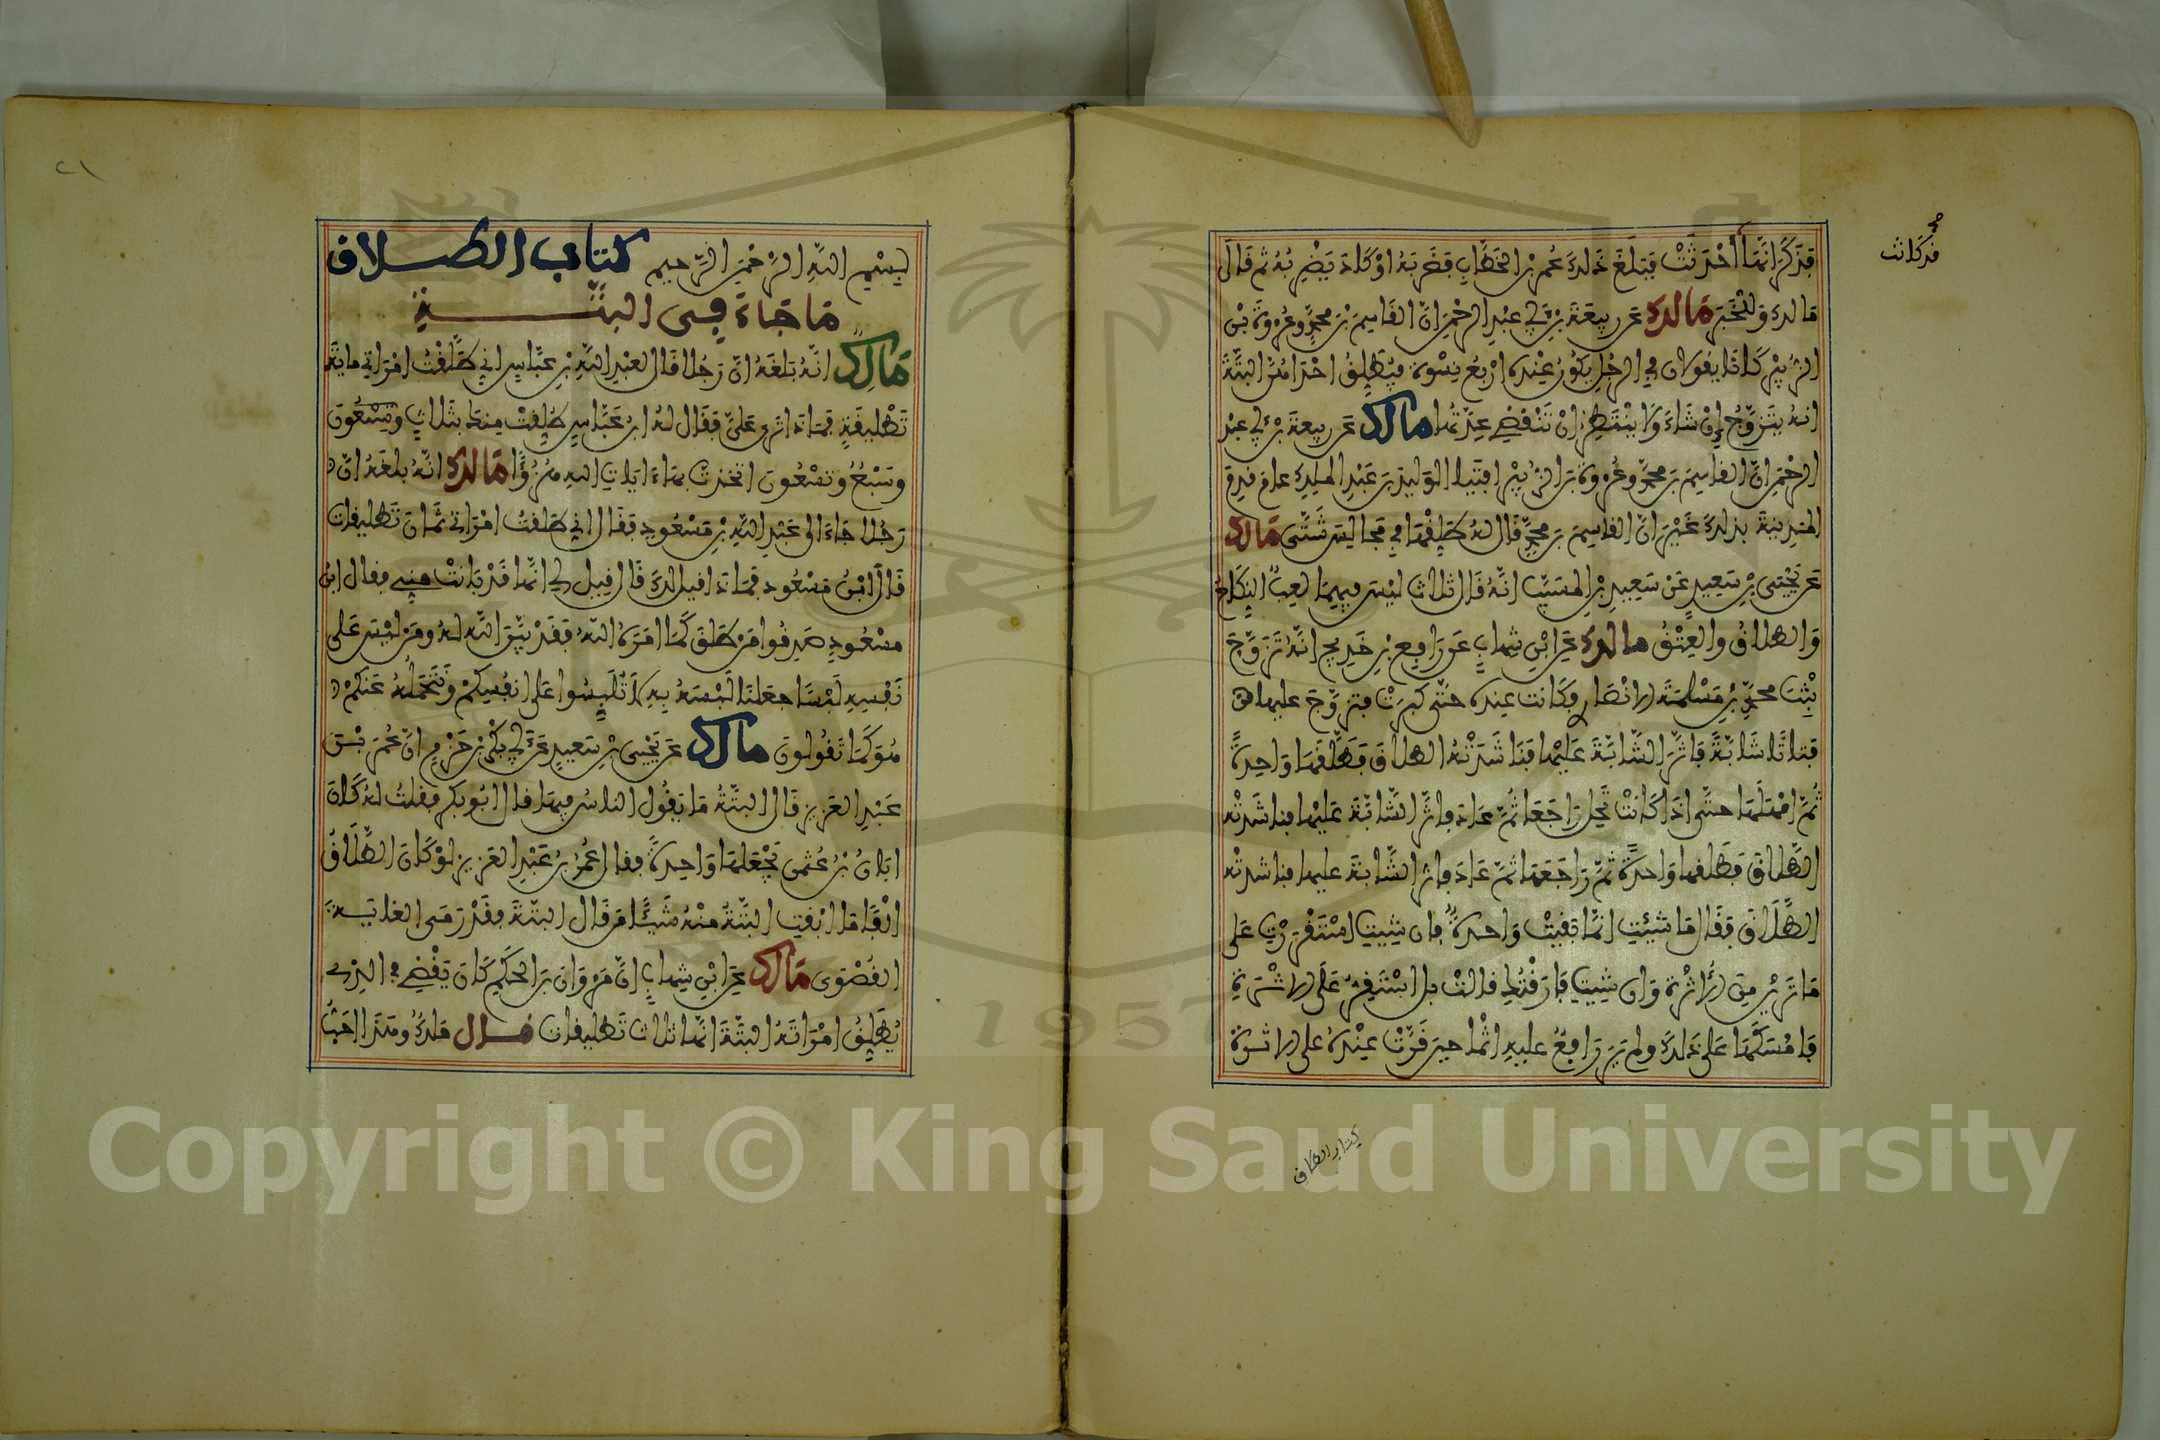 فذكر انها احدثت فبلغ ذلك عمر بن الخطاب فضربه او كاد يضربه ثم قال
قد كانت
مالك وللخبر مالك عن ربيعة بن ابي عبد الرحمن ان القاسم بن محمد وعروة بن
الزبير كانا يقولان في الرجل يكون عنده اربع نسوة فيطلق احداهن البتة
انه يتزوج إن شاء ولا ينتظر ان تنقضي عدتها مالك عن ربيعة بن ابي عبد
الرحمن ان القاسم بن محمد وعروة بن الزبير افتيا الوليد بن عبد الملك عام قدم
المدينة بذلك غير ان القاسم بن محمد قال له طلقها في مجالس شتى مالك
عن يحيى بن سعيد عن سعيد بن المسيب انه قال ثلاث ليس فيهما لعب النكاح
والطلاق والعتق مالك عن ابن شهاب عن رافع بن خديج انه تزوج
بنت محمد بن مسلمة الانصاري فكانت عنده حتى كبرت فتزوج عليها
فتاة شابة فاثر الشابة عليها فناشدته الطلاق فطلقها واحدة
ثم امهلها حتى اذا كانت تحل راجعها ثم عاد فاثر الشابة عليها فناشدته
الطلاق فطلقها واحدة ثم راجعها ثم عاد فاثر الشابة عليها فناشدته
الطلاق فقال ما شئت انما بقيت واحدة فان شيت استقررت على
ما ترين من الأثرة وان شيت فارقتك قالت بل استقر على الاثرة
فامسكها على ذلك ولم ير رافع عليه اثما حين قرت عنده على الاثرة
كتاب الطلاق
٢١
بسم الله الرحمن الرحيم كتاب الطلاق
ما جاء في البتة
مالك انه بلغه ان رجلا قال لعبد الله بن عباس اني طلقت امراتي ماية
تطليقة فماذا ترى علي فقال له ابن عباس طلقت منك بثلاث وتسعون
وسبع وتسعون اتخذت بها ايات الله هزؤا مالك انه بلغه ان
رجلا جاء الى عبد الله بن مسعود فقال اني طلقت امراتي ثمان تطليقات
قال ابن مسعود فماذا قيل لك قال قيل لي انها قد بانت مني فقال ابن
مسعود صدقوا من طلق كما امره الله فقد بين الله له ومن لبس على
نفسه لبسا جعلنا لبسه به لا تلبسوا على انفسكم ونتحمله عنكم
هو كما تقولون مالك عن يحيى بن سعيد عن ابي بكر بن حزم ان عمر بن
عبد العزيز قال البتة ما يقول الناس فيها قال ابو بكر فقلت له كان
ابان بن عثمن يجعلها واحدة فقال عمر بن عبد العزيز لو كان الطلاق
الفا ما ابقت البتة منه شيئا من قال البتة فقد رمى الغاية
القصوى مالك عن ابن شهاب ان مروان بن الحكم كان يقضي في الذي
يطلق امراته البتة انها ثلاث تطليقات قال ملك وهذا احب
Copyright © King Saud University
1957